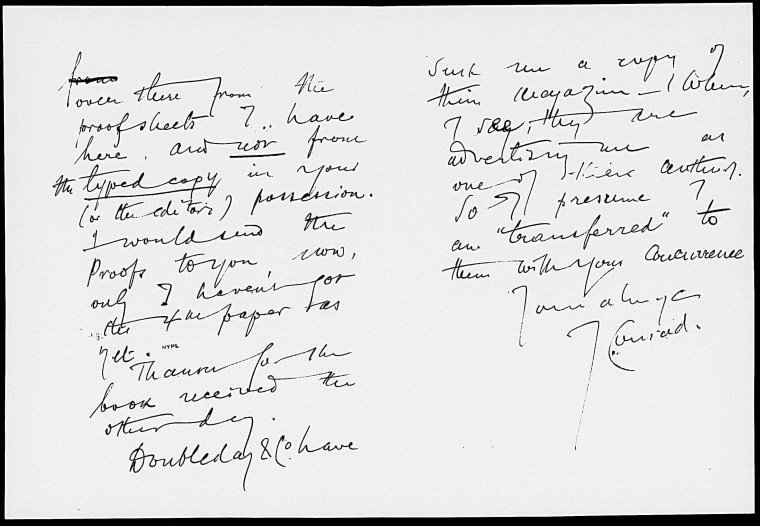 over there from the
proof sheets I have
here. and not from
the typed copy in your
(or the editors') possession.
I would send the
Proofs to you, now,
only I haven't got
the 4th paper as
yet.
NYPL
Thanks for the
book received the
other day.
Doubleday & Co. have
sent me a copy of
their magazine — when,
I see, they are
advertising me as
one of their authors.
So I presume I
am "transferred" to
them with your concurrence
Yours always
J. Conrad.